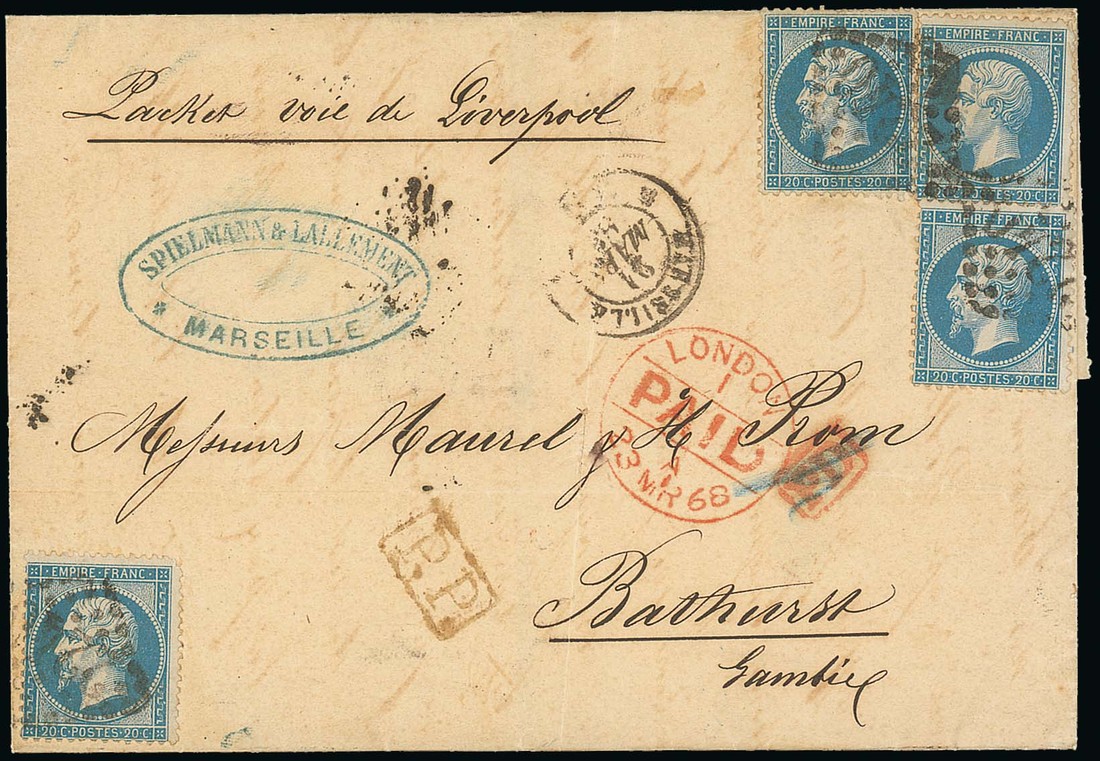 EMPIRE·FRANC
20·C·POSTES·20·C
EMPIRE·FRANC
20·C·POSTES·20·C
Packet voie de Liverpool
EMPIRE·FRANC
20·C·POSTES·20·C
SPIELMANN & LALLEMENT
* MARSEILLE *
MARSEILLE
21
MARS
68
LONDON
PAID
23 MR 68
Messieurs Maurel & H Prom
P.P.
Bathurst
Gambie
EMPIRE·FRANC
20·C·POSTES·20·C